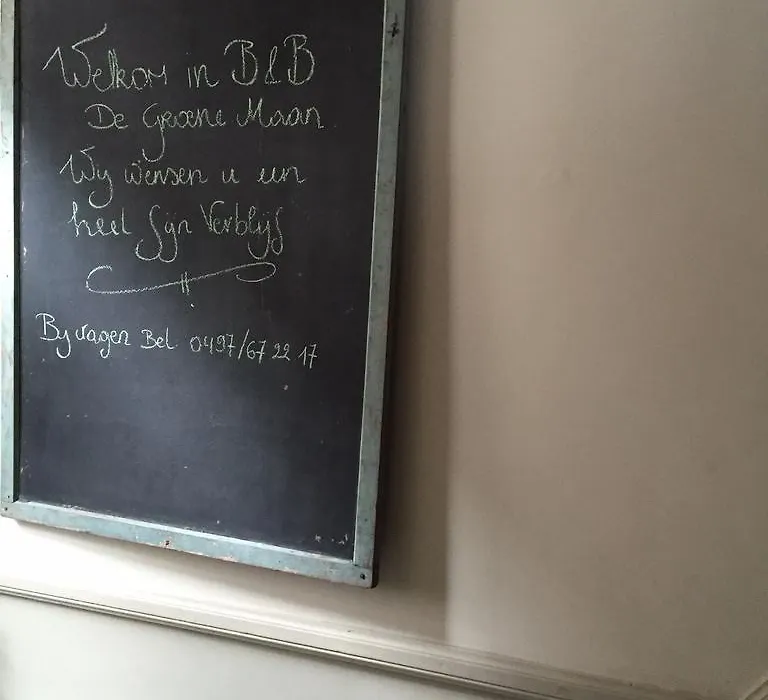 Welkom in B&B
De Groene Maan
Wij wensen u een
heel fijn Verblijf
Bij vragen Bel 0497/67 22 17